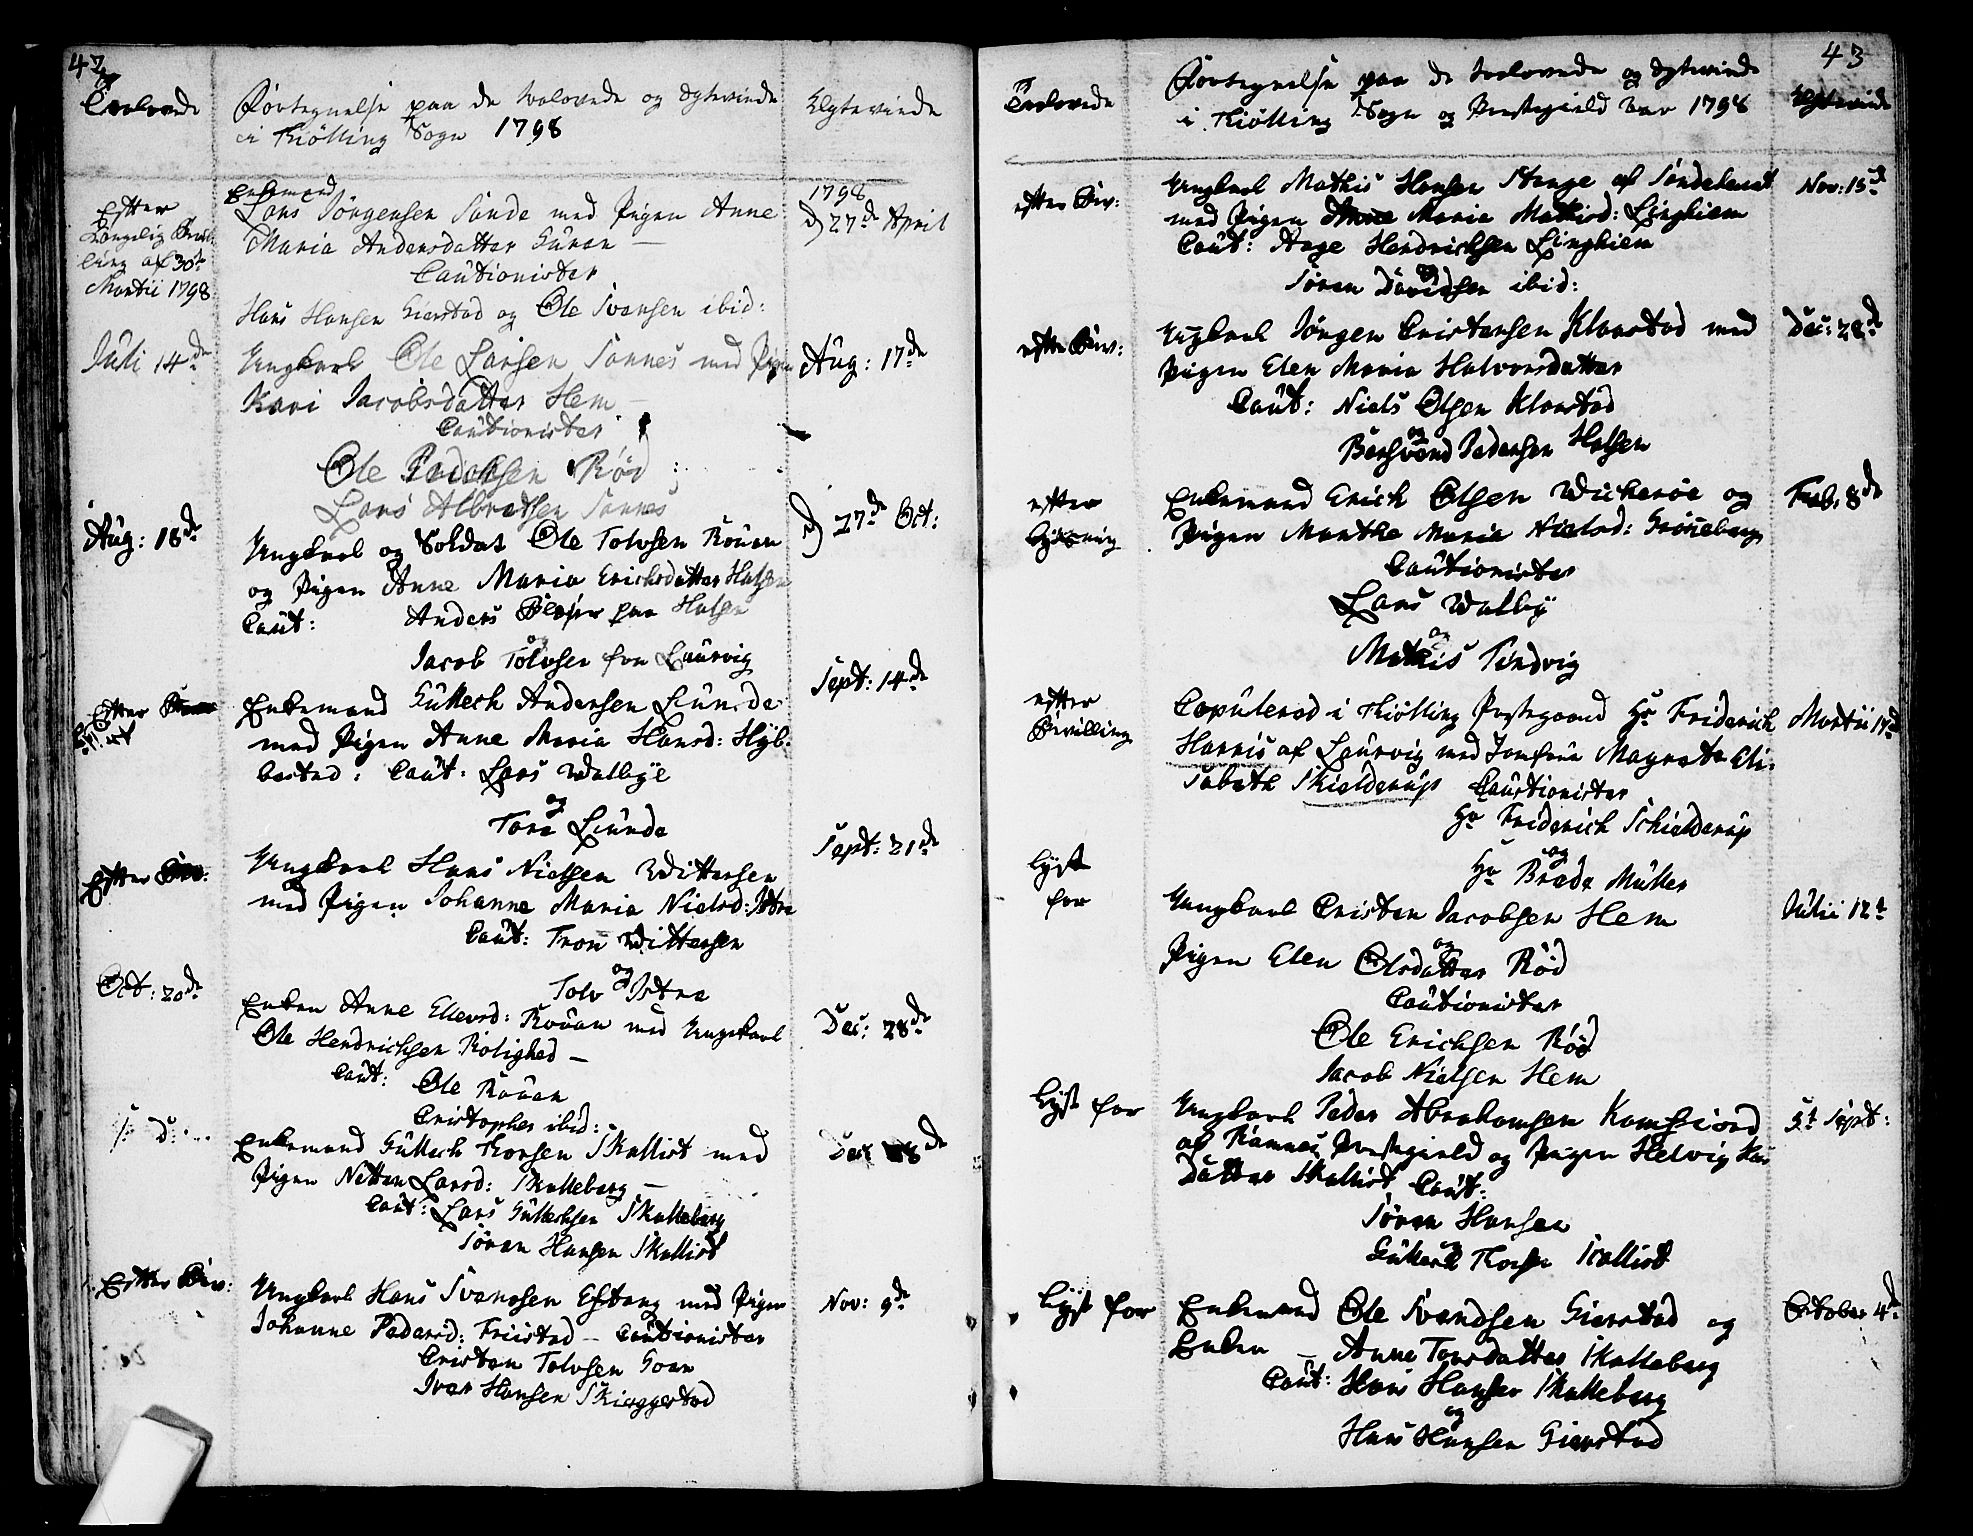 42
Trolovede
Fortegnelse paa de trolovede og Egteviede
i Tiølling Sogn 1798
Egteviede
Efter
Kongelig Bevil-
ling af 30te
Martii 1798
Enkemand
Lars Jørgensen Sande med Pigen Anne
Maria Andersdatter Guren —
Cautionister
Hans Hansen Gierstad og Ole Svensen ibid:
1798
D 27de April
Juli 14de
Ungkarl Ole Larsen Sannes med Pigen
Kari Jacobsdatter Hem —
Cautionister
Ole Rød
Lars Albretsen Sannes
Aug: 17de
Aug: 18de
Ungkarl og Soldat Ole Tolvsen Rouen
og Pigen Anne Maria Erichsdatter Halsen
Caut: Anders paa Halsen
og
Jacob Tolvsen fra Laurvig
D 27de Oct:
Efter
Enkemand Gullech Andersen Lunde
med Pigen Anne Maria Hansd: Hyb-
bestad: Caut: Lars Walbye
og
Tore Lunde
Sept: 14de
Efter Biv:
Ungkarl Hans Nielsen Wittersen
med Pigen Johanne Maria Nielsd: Istre
Caut: Tron Wittersen
og
Tolv Istre
Sept: 21de
Oct: 20de
Enken Anne Ellevsd: Rouen med Ungkarl
Ole Hendrichsen Rolighed —
Caut: Ole Rouen
Cristopher ibid:
Dec: 28de
Enkemand Gullech Thorsen Skallist med
Pigen Netten Larsd: Skalleberg —
Caut: Lars Gullechsen Skalleberg
Søren Hansen Skallist
Dec 28de
Efter Biv:
Ungkarl Hans Svendsen Eftang med Pigen
Johanne Pedersd: Friistad — Cautionister
Cristen Tolvsen Goen
Iver Hansen Skieggestad
Nov: 9de
43
Trolovede
Fortegnelse paa de trolovede og Egteviede
i Tiølling Sogn og Prestegield Aar 1798
Egteviede
efter Biv:
Ungkarl Mathis Hansen Stange af Sandeherret
med Pigen Anne Maria Mathisd: Linghiem
Caut: Aage Hendrichsen Linghiem
og
Søren Davidsen ibid:
Nov: 15de
efter Biv:
Ungkarl Jørgen Cristensen Klaastad med
Pigen Elen Maria Halvorsdatter
Caut: Niels Olsen Klaastad
og
Bersvend Pedersen Halsen
Dec: 28de
efter
Enkemand Erich Olsen Wicherøe og
Pigen Marthe Maria Nielsd: Grønneberg
Cautionister
Lars Walbÿ
og
Mathis Tindvig
Feb. 8de
efter
Bevilling
Copulered i Tiølling Prestegaard Hr Friderich
Harris af Laurvig med Jomfrue Magrete Eli-
sabeth Skielderup Cautionister
Hr Friderich Schielderup
og
Hr Brede Müller
Martii 17de
Lyst
for
Ungkarl Cristen Jacobsen Hem
og
Pigen Elen Olsdatter Rød
Cautionister
Ole Erichsen Rød
Jacob Nielsen Hem
Julii 12te
Lyst for
Ungkarl Peder Abrahamsen Kamfiord
af Ramnes Prestegield og Pigen Helvig
Datter Skallist Caut:
Søren Hansen
og
Gullech Thorsen Skallist
5te Sept:
Lyst for
Enkemand Ole Svendsen Gierstad og
Enken — Anne Torsdatter Skalleberg
Caut: Hans Hansen Skalleberg
og
Hans Hansen Gierstad
October 4de